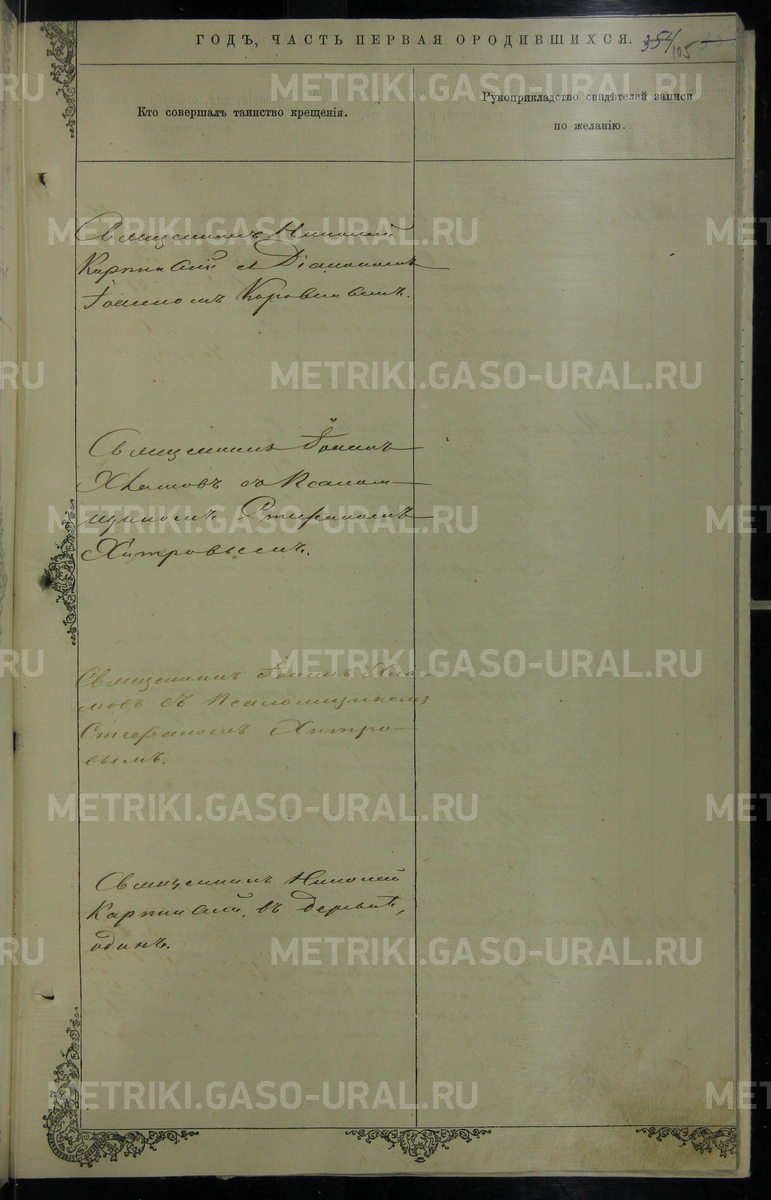 ГОДЪ, ЧАСТЬ ПЕРВАЯ О РОДИВШИХСЯ. 354 105
Кто совершалъ таинство крещенія.
Рукоприкладство свидѣтелей записи
по желанію.
Священникъ Николай
Карпинскій съ Діакономъ
Іоанномъ Коровинымъ.
Священникъ Іоаннъ
Хламовъ съ Псалом-
щикомъ Стефаномъ
Хитровымъ.
Священникъ Іоаннъ Хла-
мовъ съ Псаломщикомъ
Стефаномъ Хитро-
вымъ.
Священникъ Николай
Карпинскій, въ деревнѣ,
одинъ.
METRIKI.GASO-URAL.RU